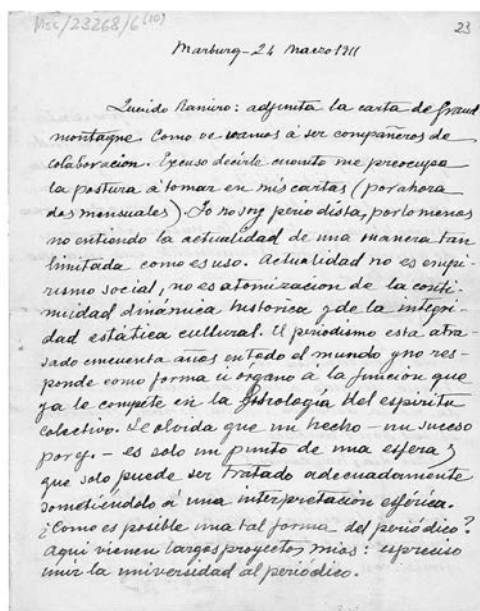 Mss/23268/6(10)
23
Marburg - 24 Marzo 1911
Querido Ramiro: adjunta la carta de Grand
montagne. Como ve vamos á ser compañeros de
colaboracion. Excuso decirle cuanto me preocupa
la postura á tomar en mis cartas (por ahora
dos mensuales). Yo no soy periodista, por lo menos
no entiendo la actualidad de una manera tan
limitada como es uso. Actualidad no es empi-
rismo social, no es atomizacion de la conti-
nuidad dinámica histórica y de la integri-
dad estática cultural. El periodismo esta atra-
sado cincuenta años en todo el mundo y no res-
ponde como forma ú órgano á la función que
ya le compete en la fisiología del espíritu
colectivo. Se olvida que un hecho - un suceso
por ej. - es solo un punto de una esfera y
que solo puede ser tratado adecuadamente
sometiéndolo á una interpretación esférica.
¿Como es posible una tal forma del periódico?
Aqui vienen largos proyectos mios: es preciso
unir la universidad al periódico.